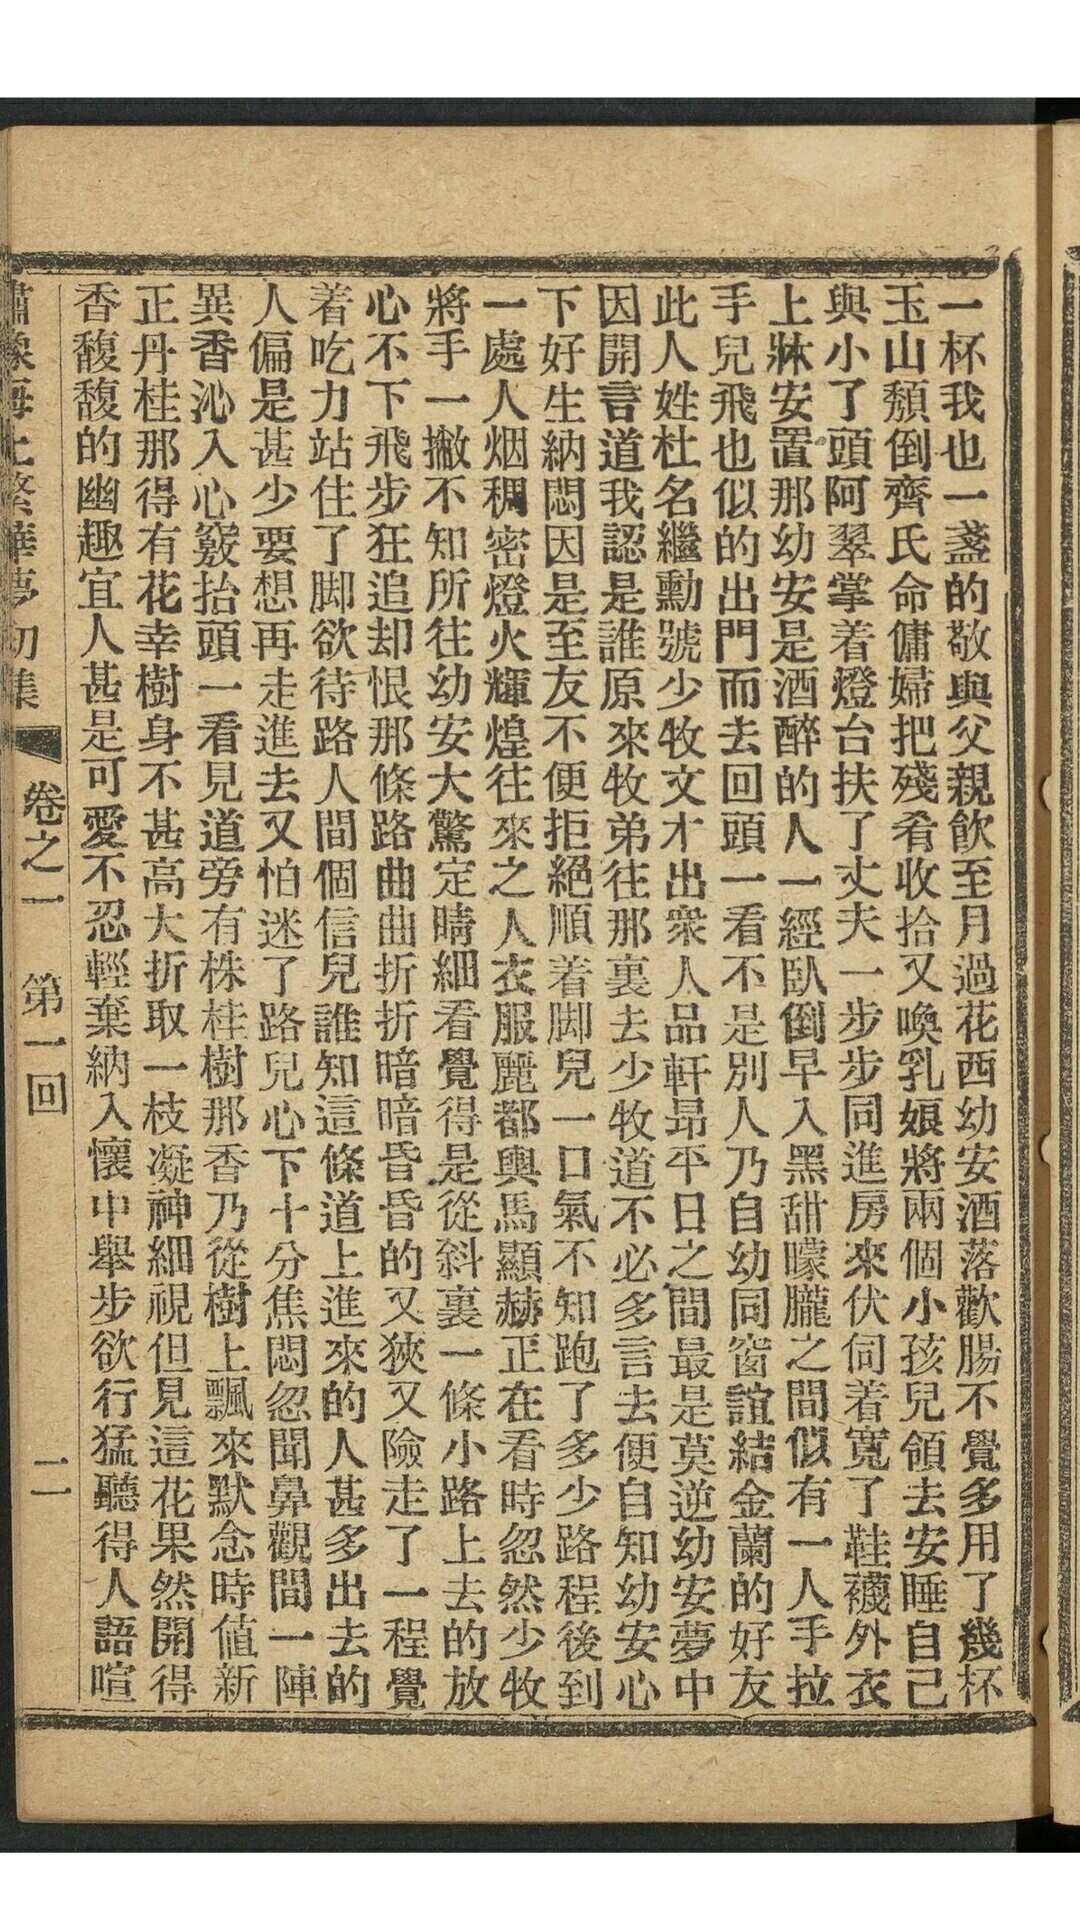 一杯我也一盞的敬與父親飮至月過花西幼安酒落歡腸不覺多用了幾杯
玉山頽倒齊氏命傭婦把殘肴收拾又喚乳娘將兩個小孩兒領去安睡自己
與小了頭阿翠掌着燈台扶了丈夫一步步同進房來伏伺着寬了鞋襪外衣
上牀安置那幼安是酒醉的人一經臥倒早入黑甜曚朧之間似有一人手拉
手兒飛也似的出門而去回頭一看不是別人乃自幼同窗誼結金蘭的好友
此人姓杜名繼勳號少牧文才出衆人品軒昂平日之間最是莫逆幼安夢中
因開言道我認是誰原來牧弟往那裏去少牧道不必多言去便自知幼安心
下好生納悶因是至友不便拒絕順着脚兒一口氣不知跑了多少路程後到
一處人烟稠密燈火輝煌往來之人衣服麗都輿馬顯赫正在看時忽然少牧
將手一撇不知所往幼安大驚定睛細看覺得是從斜裏一條小路上去的放
心不下飛步狂追却恨那條路曲曲折折暗暗昏昏的又狹又險走了一程覺
着吃力站住了脚欲待路人間個信兒誰知這條道上進來的人甚多出去的
人偏是甚少要想再走進去又怕迷了路兒心下十分焦悶忽聞鼻觀間一陣
異香沁入心竅抬頭一看見道旁有株桂樹那香乃從樹上飄來默念時値新
正丹桂那得有花幸樹身不甚高大折取一枝凝神細視但見這花果然開得
香馥馥的幽趣宜人甚是可愛不忍輕棄納入懷中舉步欲行猛聽得人語喧
繡像海上繁華夢初集 卷之一 第一回 二